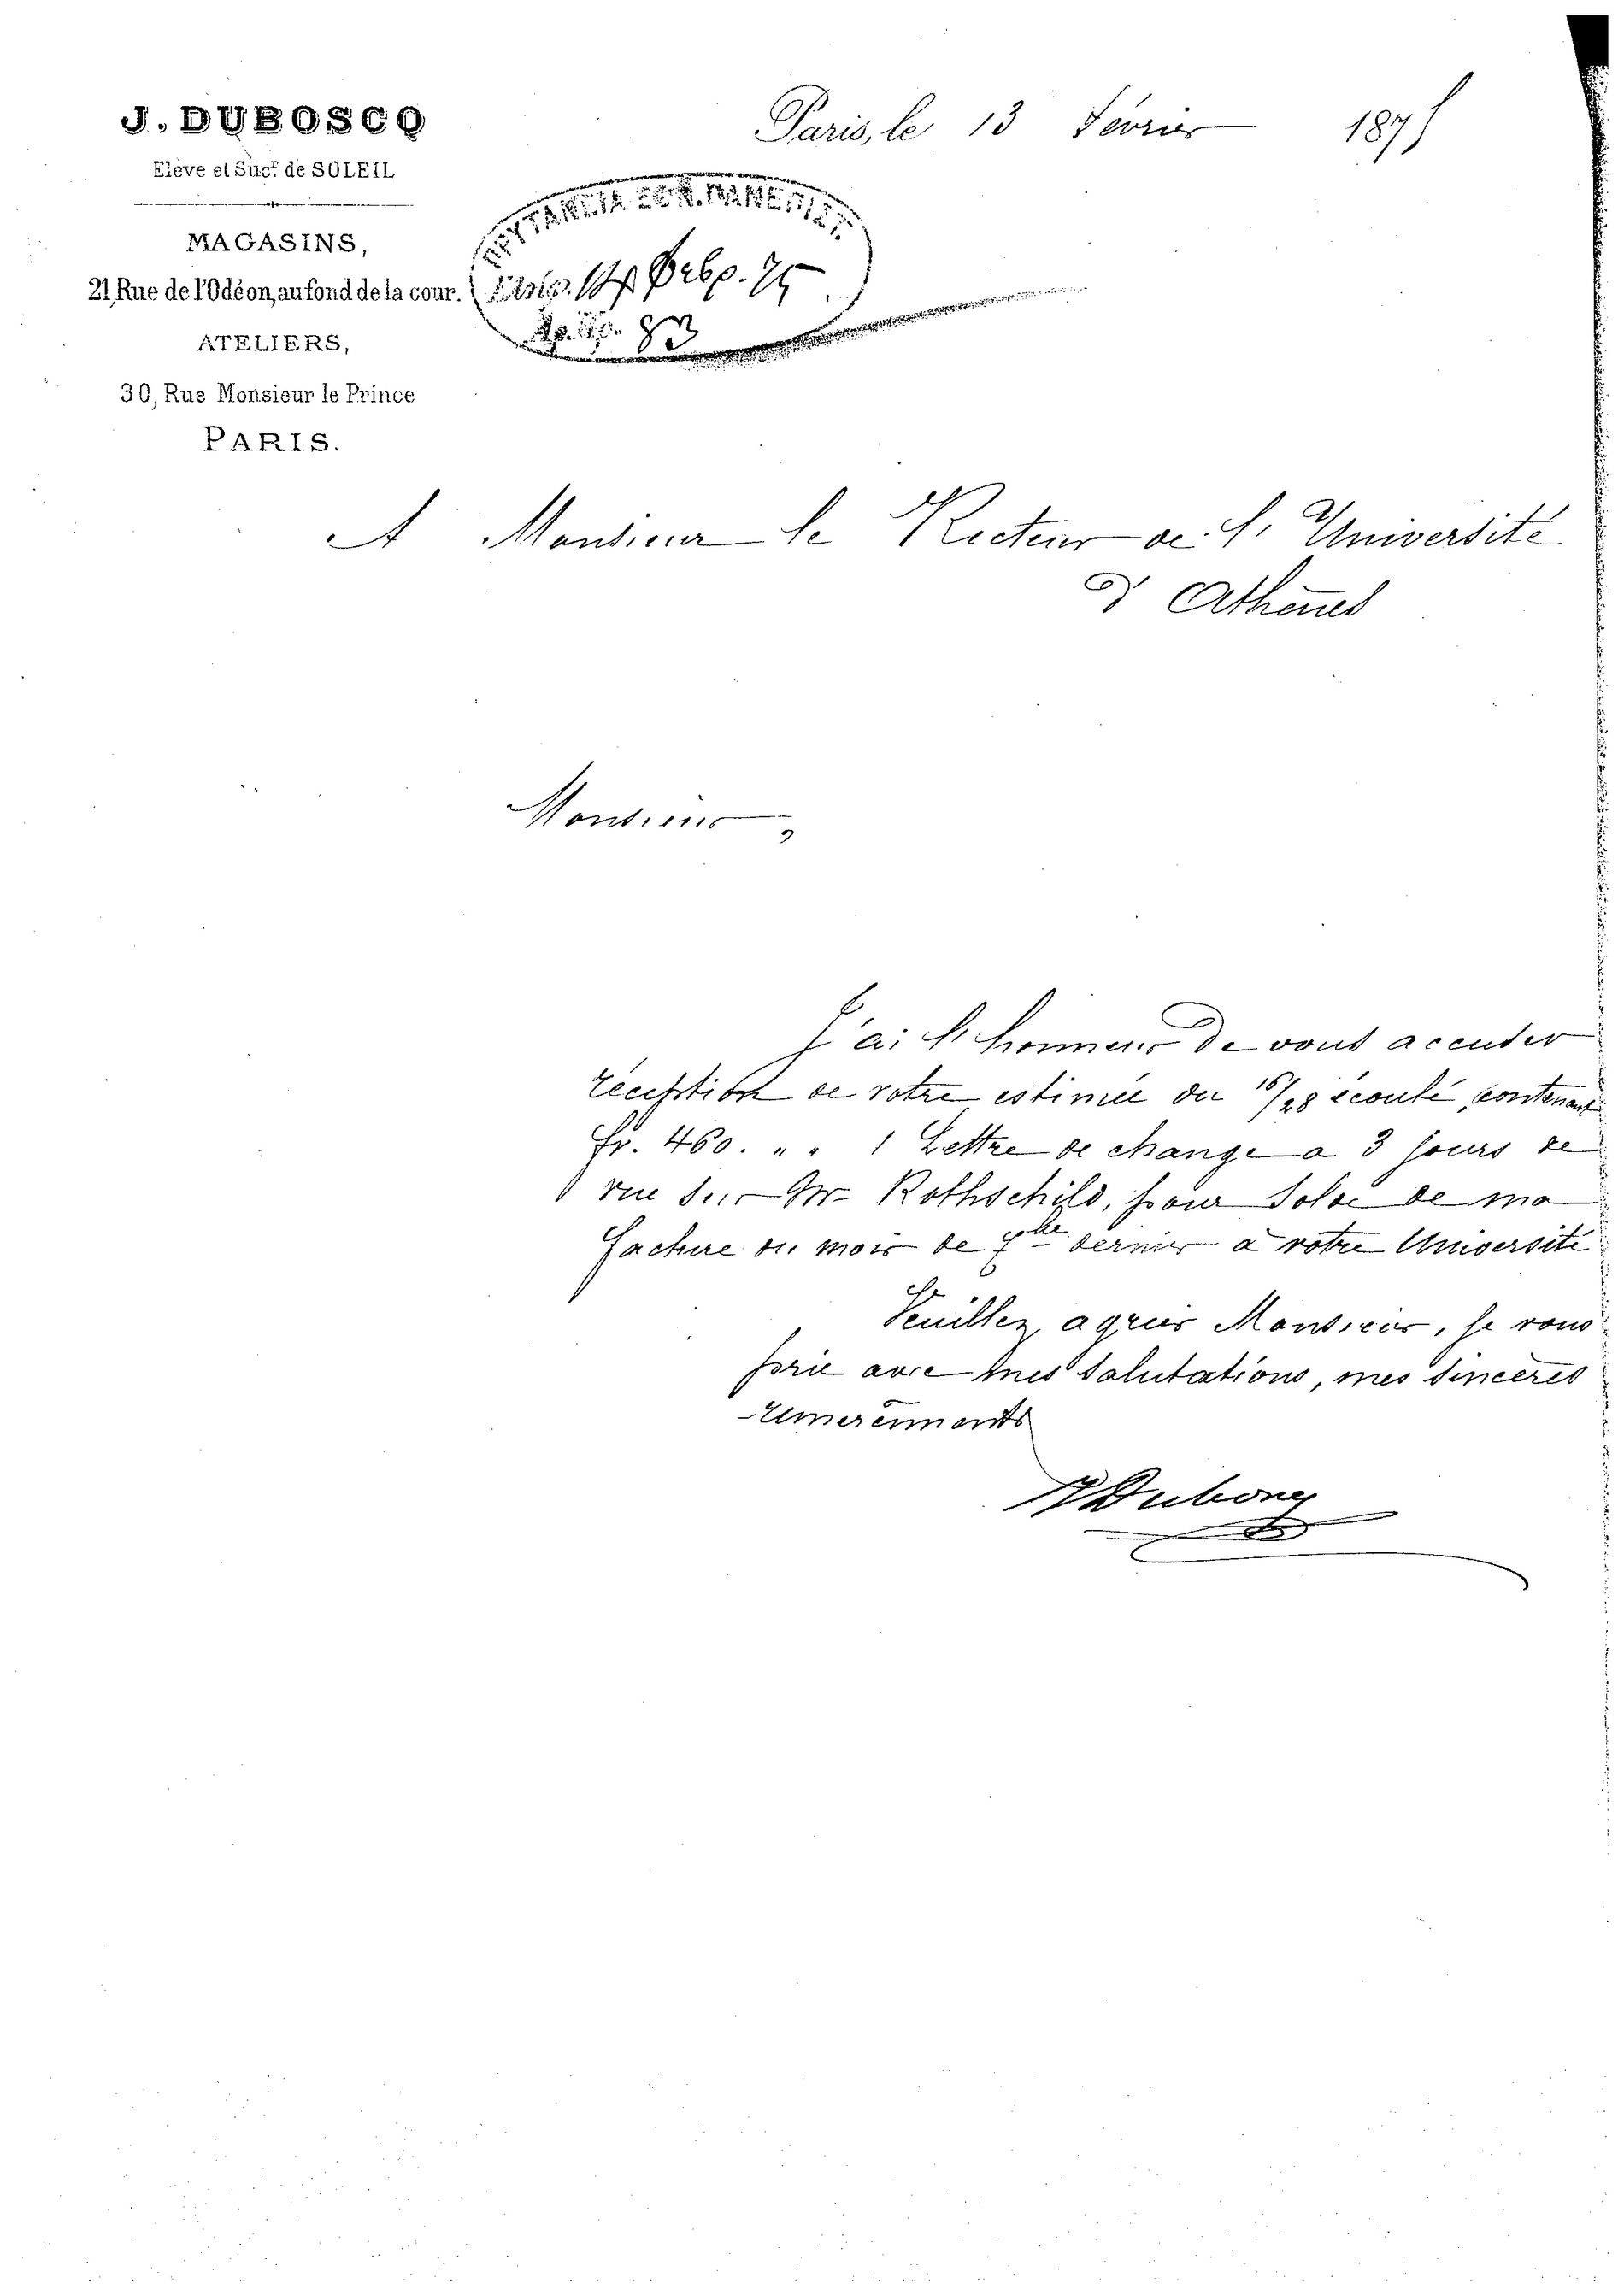 J. DUBOSCQ
Elève et Sucr. de SOLEIL
MAGASINS,
21, Rue de l'Odéon, au fond de la cour.
ATELIERS,
30, Rue Monsieur le Prince
PARIS.
Paris, le 13 Février 1875
ΠΡΥΤΑΝΕΙΑ ΕΘΝ. ΠΑΝΕΠΙΣΤ.
Φεβρ. 75
83
A Monsieur le Recteur de l'Université
d'Athènes
Monsieur,
J'ai l'honneur de vous accuser
réception de votre estimée du 16/28 écoulé, contenant
fr. 460. " " 1 Lettre de change a 3 jours de
vue sur Mr Rothschild, pour solde de ma
facture du mois de 7bre dernier à votre Université
Veuillez agréer Monsieur, je vous
prie avec mes salutations, mes sincères
remerciments
J Duboscq